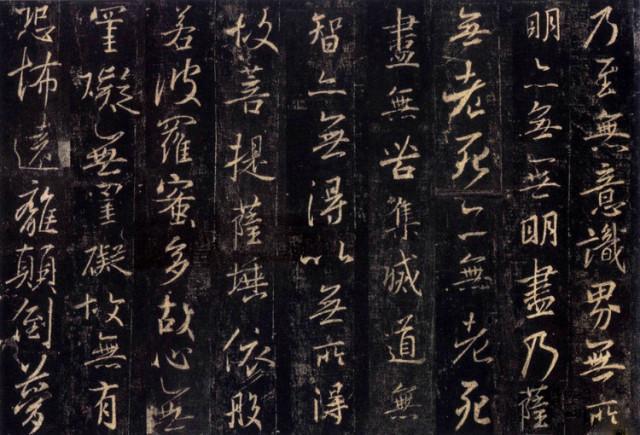 乃至無意識界無所
明亦無無明盡乃薩
無老死亦無老死
盡無苦集滅道無
智亦無得以無所得
故菩提薩埵依般
若波羅蜜多故心無
罣礙無罣礙故無有
恐怖遠離顛倒夢